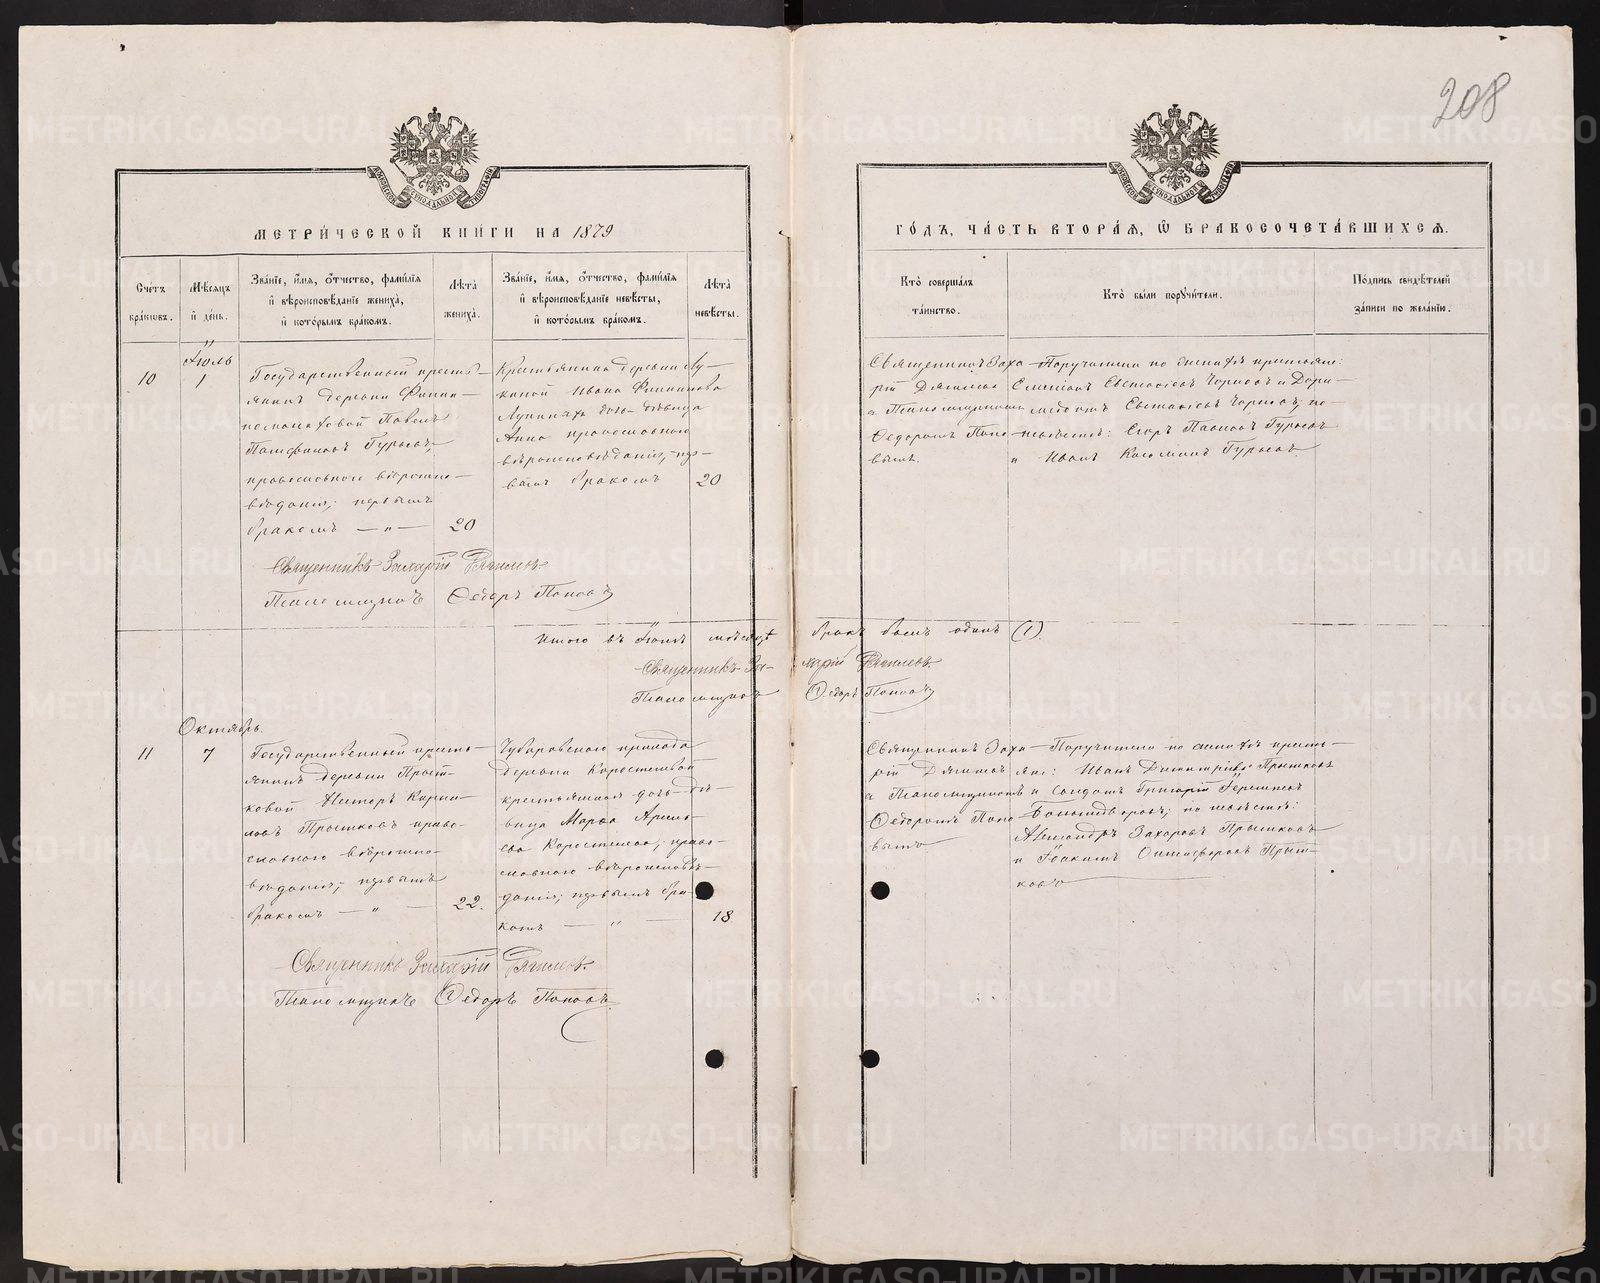 208
МЕТРИ́ЧЕСКОЙ КНИ́ГИ НА 1879
ГО́ДЪ, ЧА́СТЬ ВТОРА́Я, Ѿ БРАКОСОЧЕТА́ВШИХСЯ.
Счетъ бра́кѡвъ.
Мѣсяцъ и҆ де́нь.
Зва́нїе, и҆́мя, ѻ҆́тчество, фами́лїя и҆ вѣроисповѣ́данїе жениха̀, и҆ кото́рымъ бра́комъ.
Лѣ́та жениха̀.
Зва́нїе, и҆́мя, ѻ҆́тчество, фами́лїя и҆ вѣроисповѣ́данїе невѣ́сты, и҆ кото́рымъ бра́комъ.
Лѣ́та невѣ́сты.
Кто̀ соверша́лъ та́инство.
Кто̀ бы́ли поручи́тели.
По́дпись свидѣ́телей за́писи по жела́нїю.
10
Іюль
1
Государственный кресть-
янинъ деревни
Павелъ
Гурьевъ,
православнаго вѣроиспо-
вѣданія; первымъ
бракомъ — „ — 20
Крестьянина деревни Лу-
киной Ивана Филиппова
дочь дѣвица
Анна православнаго
вѣроисповѣданія, пер-
вымъ бракомъ 20
Священникъ Заха-
рій Дягилевъ
и Псаломщикомъ
Ѳедоромъ Попо-
вымъ.
Поручители по женихѣ крестьяне:
Чорновъ и
Чорновъ; по
невѣстѣ: Егоръ Павловъ Гурьевъ
и Иванъ Гурьевъ
Священникъ Захарій Дягилевъ.
Псаломщикъ Ѳедоръ Поповъ
Итого въ Іюлѣ мѣсяцѣ бракъ былъ одинъ (1).
Священникъ За-харій Дягилевъ.
Псаломщикъ Ѳедоръ Поповъ
Октябрь.
11
7
Государственный кресть-
янинъ деревни Прыт-
ковой Несторъ Карпи-
ловъ Прытковъ право-
славнаго вѣроиспо-
вѣданія; первымъ
бракомъ — „ — 22.
Чубаровскаго прихода
деревни Коростелевой
крестьянская дочь дѣ-
вица Марѳа
Коростелева; право-
славнаго вѣроисповѣ-
данія; первымъ бра-
комъ — „ — 18
Священникъ Заха-
рій Дягилевъ
и Псаломщикомъ
Ѳедоромъ Попо-
вымъ
Поручители по женихѣ кресть-
яне: Иванъ Димитріевъ Прытковъ
и Солдатъ Григорій
по невѣстѣ:
Александръ Захаровъ Прытковъ
и Іоакимъ Прыт-
ковъ
Священникъ Захарій Дягилевъ.
Псаломщикъ Ѳедоръ Поповъ
METRIKI.GASO-URAL.RU